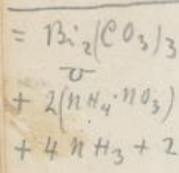 = Bi₂(CO₃)₃
+ 2(NH₄·NO₃)
+ 4NH₃ + 2